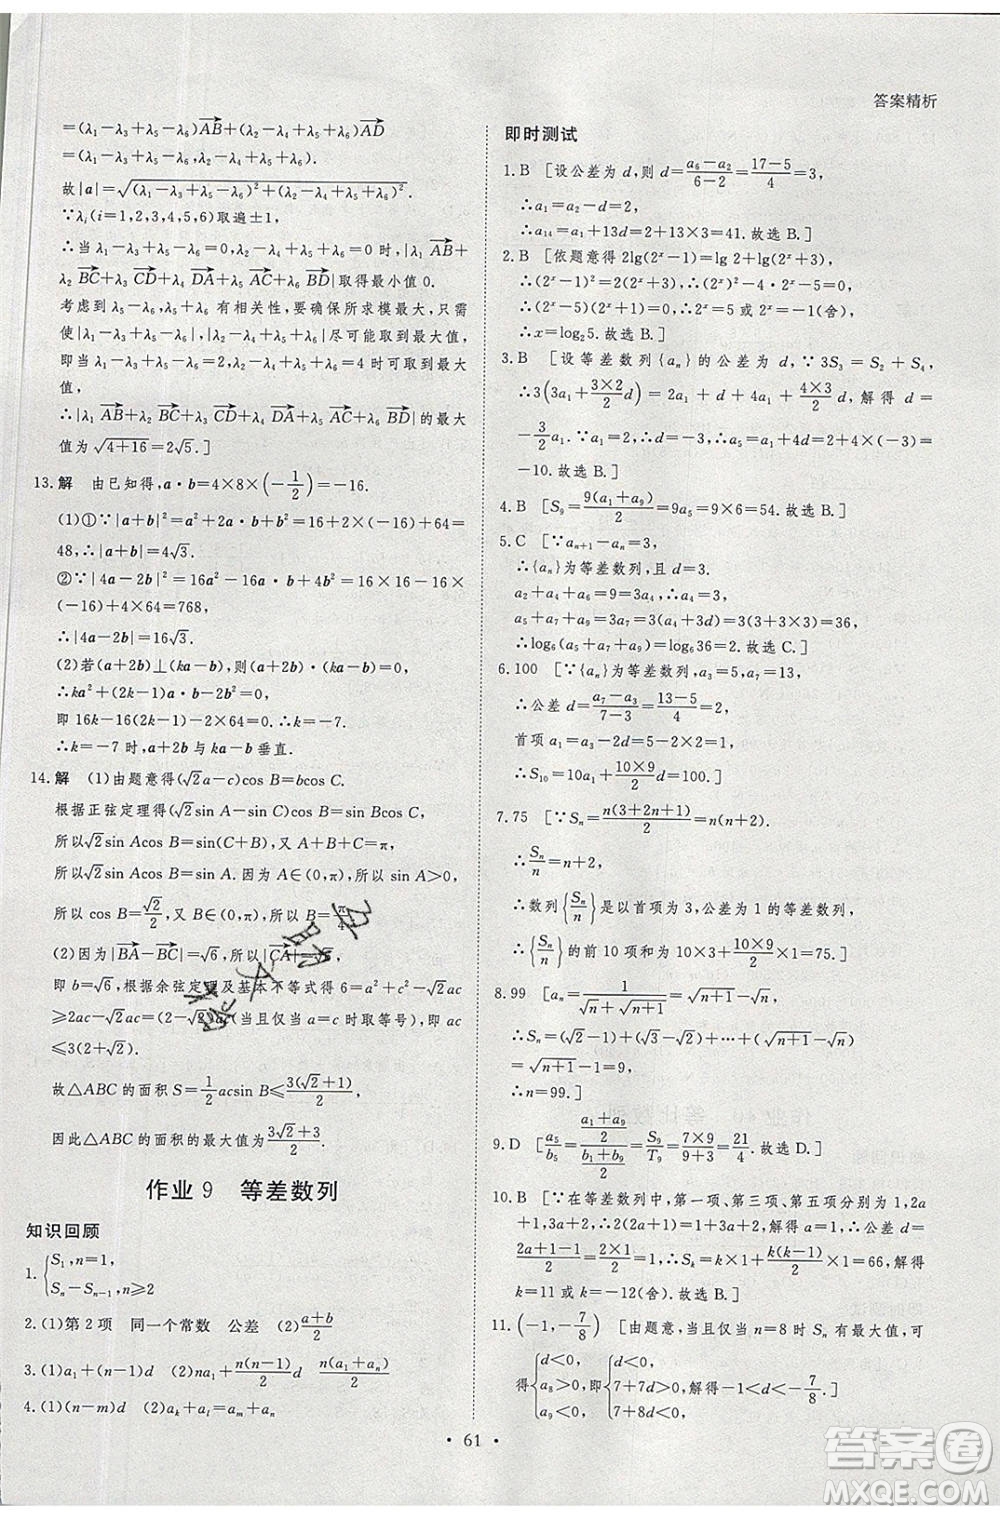 答案精析
=(λ₁-λ₃+λ₅-λ₆)AB+(λ₂-λ₄+λ₅+λ₆)AD
故|a|=√((λ₁-λ₃+λ₅-λ₆)²+(λ₂-λ₄+λ₅+λ₆)²).
∵λᵢ(i=1,2,3,4,5,6)取遍±1,
∴当 λ₁-λ₃+λ₅-λ₆=0,λ₂-λ₄+λ₅+λ₆=0 时,|λ₁AB+
λ₂BC+λ₃CD+λ₄DA+λ₅AC+λ₆BD|取得最小值 0.
考虑到 λ₅-λ₆,λ₅+λ₆ 有相关性,要确保所求模最大,只
需要使|λ₁-λ₃+λ₅-λ₆|,|λ₂-λ₄+λ₅+λ₆|尽可能取到最大值,
即当 λ₁-λ₃+λ₅-λ₆=2,λ₂-λ₄+λ₅+λ₆=4 时可取到最大
值,
∴|λ₁AB+λ₂BC+λ₃CD+λ₄DA+λ₅AC+λ₆BD|的最大
值为√(4+16)=2√5.]
13.解 由已知得,a·b=4×8×(-1/2)=-16.
(1)①∵|a+b|²=a²+2a·b+b²=16+2×(-16)+64=
48,∴|a+b|=4√3.
②∵|4a-2b|²=16a²-16a·b+4b²=16×16-16×
(-16)+4×64=768,
∴|4a-2b|=16√3.
(2)若(a+2b)⊥(ka-b),则(a+2b)·(ka-b)=0,
∴ka²+(2k-1)a·b-2b²=0,
即 16k-16(2k-1)-2×64=0.
∴k=-7,即 k=-7 时,a+2b 与 ka-b 垂直.
14.解 (1)由题意得(√2a-c)cos B=bcos C.
根据正弦定理得(√2sin A-sin C)cos B=sin Bcos C,
所以√2sin Acos B=sin(C+B),
所以√2sin Acos B=sin A.因为 A∈(0,π),所以 sin A>0,
所以 cos B=√2/2,又 B∈(0,π),所以 B=π/4.
(2)因为|BA-BC|=√6,所以|CA|=√6,
即 b=√6,根据余弦定理及基本不等式得 6=a²+c²-√2ac
≥2ac-√2ac=(2-√2)ac(当且仅当 a=c 时取等号),即 ac
≤3(2+√2).
故△ABC 的面积 S=1/2acsin B≤3(√2+1)/2,
因此△ABC 的面积的最大值为(3√2+3)/2.
作业 9 等差数列
知识回顾
1.{S₁,n=1,
Sₙ-Sₙ₋₁,n≥2
2.(1)第 2 项 同一个常数 公差 (2)(a+b)/2
3.(1)a₁+(n-1)d (2)na₁+n(n-1)/2 d n(a₁+aₙ)/2
4.(1)(n-m)d (2)aₖ+aₗ=aₘ+aₙ
即时测试
1.B [设公差为 d,则 d=(a₆-a₂)/(6-2)=(17-5)/4=3,
∴a₁=a₂-d=2,
∴a₁₄=a₁+13d=2+13×3=41.故选 B.]
2.B [依题意得 2lg(2ˣ-1)=lg 2+lg(2ˣ+3),
∴(2ˣ-1)²=2(2ˣ+3),
∴(2ˣ-5)(2ˣ+1)=0,∴2ˣ=5 或 2ˣ=-1(舍),
∴x=log₂5.故选 B.]
3.B [设等差数列{aₙ}的公差为 d,∵3S₃=S₂+S₄,
∴3(3a₁+(3×2)/2 d)=2a₁+d+4a₁+(4×3)/2 d,解得 d=
-3/2a₁.∵a₁=2,∴d=-3,∴a₅=a₁+4d=2+4×(-3)=
-10.故选 B.]
4.B [S₉=9(a₁+a₉)/2=9a₅=9×6=54.故选 B.]
5.C [∵aₙ₊₁-aₙ=3,
∴{aₙ}为等差数列,且 d=3.
a₂+a₄+a₆=9=3a₄,∴a₄=3,
a₅+a₇+a₉=3a₇=3(a₄+3d)=3(3+3×3)=36,
∴log₆(a₅+a₇+a₉)=log₆36=2.故选 C.]
6.100 [∵{aₙ}为等差数列,a₃=5,a₇=13,
∴公差 d=(a₇-a₃)/(7-3)=(13-5)/4=2,
首项 a₁=a₃-2d=5-2×2=1,
∴S₁₀=10a₁+(10×9)/2 d=100.]
7.75 [∵Sₙ=n(3+2n+1)/2=n(n+2).
∴Sₙ/n=n+2,
∴数列{Sₙ/n}是以首项为 3,公差为 1 的等差数列,
∴{Sₙ/n}的前 10 项和为 10×3+(10×9)/2×1=75.]
8.99 [aₙ=1/(√n+√(n+1))=√(n+1)-√n,
∴Sₙ=(√2-1)+(√3-√2)+…+(√(n+1)-√n)=
√(n+1)-1=9,
∴n=99.]
9.D [a₅/b₅=((a₁+a₉)/2)/((b₁+b₉)/2)=S₉/T₉=(7×9)/(9+3)=21/4.故选 D.]
10.B [∵在等差数列中,第一项、第三项、第五项分别为 1,2a
+1,3a+2,∴2(2a+1)=1+3a+2,解得 a=1,∴公差 d=
(2a+1-1)/2=(2×1)/2=1,∴Sₖ=k×1+k(k-1)/2×1=66,解得
k=11 或 k=-12(舍).]
11.(-1,-7/8) [由题意,当且仅当 n=8 时 Sₙ 有最大值,可
得{d<0,a₈>0,a₉<0,即{d<0,7+7d>0,7+8d<0,解得-1<d<-7/8.]
·61·
答案卷
MXQE.COM